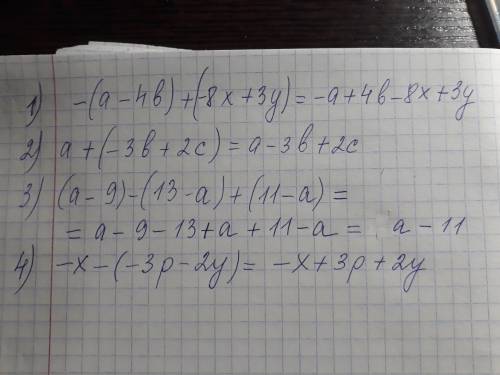 1) -(a-4b)+(-8x+3y)=-a+4b-8x+3y
2) a+(-3b+2c)=a-3b+2c
3) (a-9)-(13-a)+(11-a)=
=a-9-13+a+11-a= a-11
4) -x-(-3p-2y)= -x+3p+2y